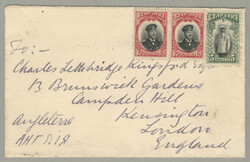 To:-
Charles Lethbridge Kingsford Esq
13 Brunswick Gardens
Campden Hill
Kensington
London
England
Angleterre